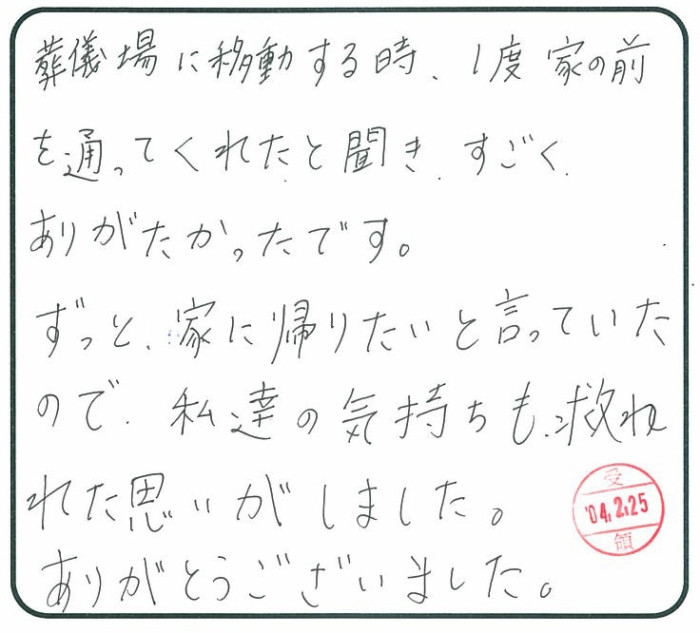 葬儀場に移動する時、1度家の前
を通ってくれたと聞き、すごく
ありがたかったです。
ずっと、家に帰りたいと言っていた
ので、私達の気持ちも、救わ
れた思いがしました。
ありがとうございました。
受
'04.2.25
領